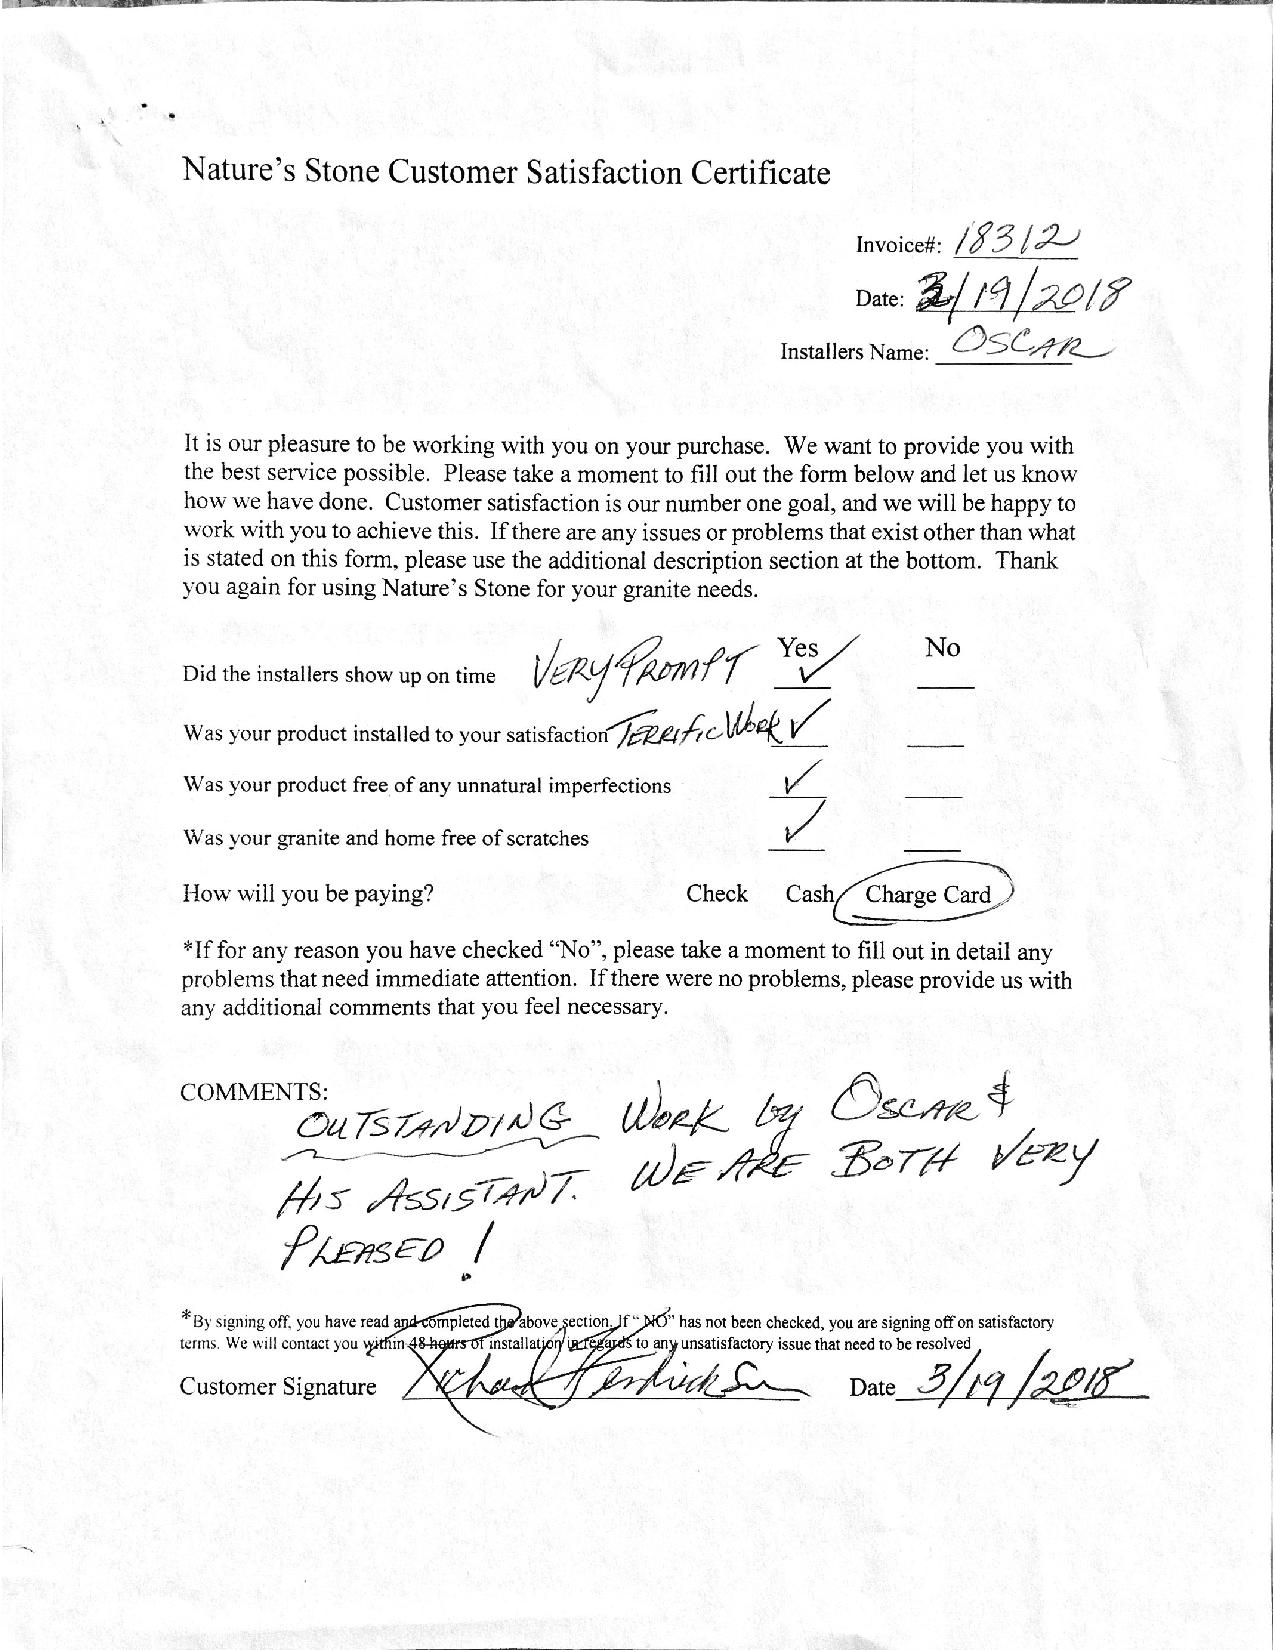 Nature's Stone Customer Satisfaction Certificate
Invoice#: 18312
Date: 3/19/2018
Installers Name: OSCAR
It is our pleasure to be working with you on your purchase. We want to provide you with
the best service possible. Please take a moment to fill out the form below and let us know
how we have done. Customer satisfaction is our number one goal, and we will be happy to
work with you to achieve this. If there are any issues or problems that exist other than what
is stated on this form, please use the additional description section at the bottom. Thank
you again for using Nature's Stone for your granite needs.
Yes No
Did the installers show up on time VERY PROMPT ✓
Was your product installed to your satisfaction TERRIFIC WORK ✓
Was your product free of any unnatural imperfections ✓
Was your granite and home free of scratches ✓
How will you be paying? Check Cash Charge Card
*If for any reason you have checked "No", please take a moment to fill out in detail any
problems that need immediate attention. If there were no problems, please provide us with
any additional comments that you feel necessary.
COMMENTS:
OUTSTANDING WORK by OSCAR &
HIS ASSISTANT. WE ARE BOTH VERY
PLEASED!
*By signing off, you have read and completed the above section. If "NO" has not been checked, you are signing off on satisfactory
terms. We will contact you within 48 hours of installation in regards to any unsatisfactory issue that need to be resolved
Customer Signature Date 3/19/2018